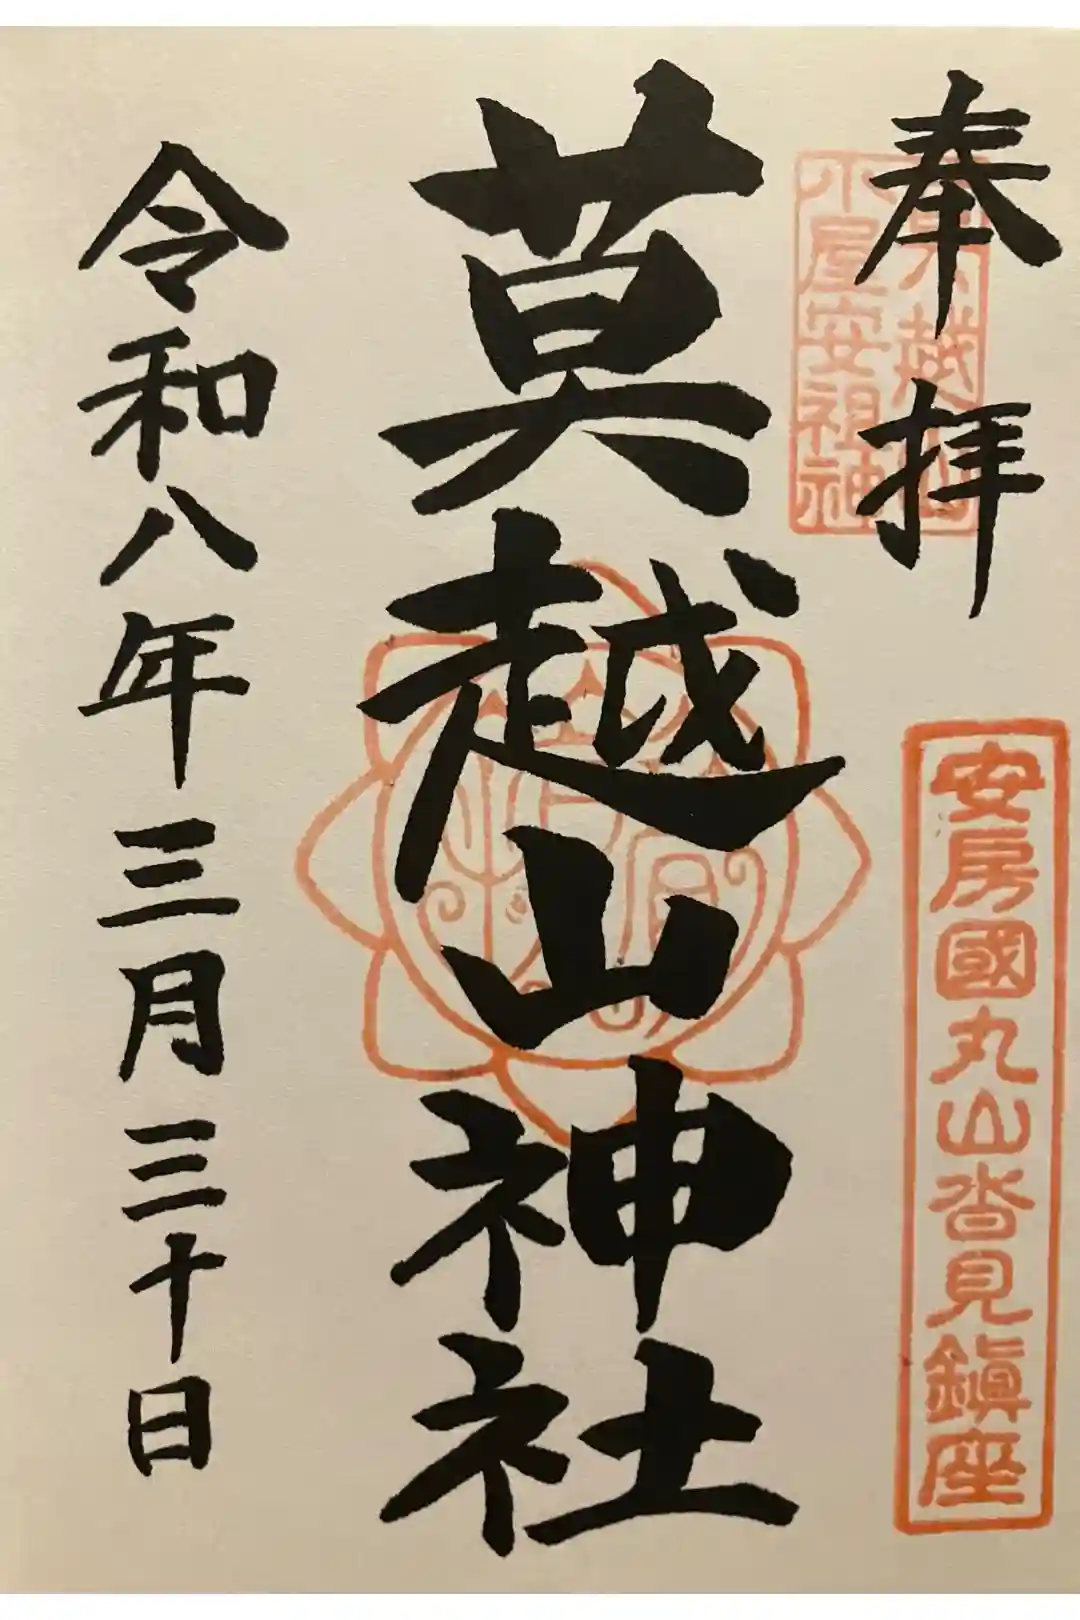 奉拝
莫越山
小屋安祖神
安房國丸山沓見鎮座
莫越山神社
令和八年三月三十日